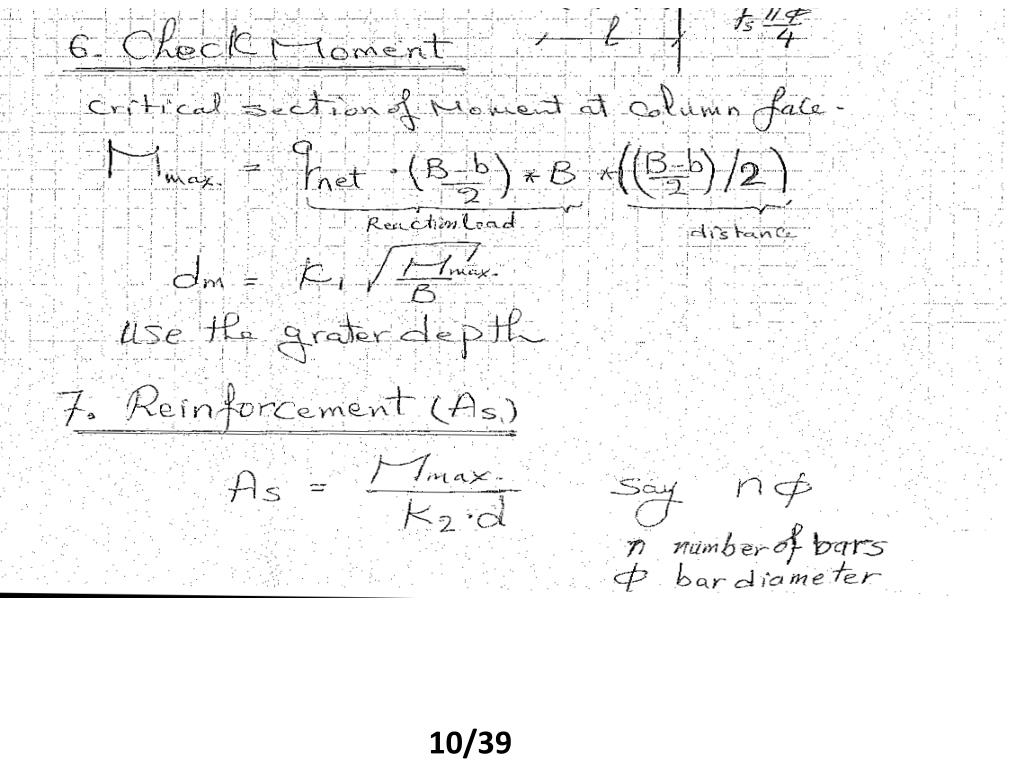 6- Check Moment
l
fs πΦ/4
critical section of Moment at Column face -
Mmax. = qnet · (B-b/2) * B * ((B-b/2)/2)
Reaction load
distance
dm = K1 √(Mmax./B)
use the grater depth
7. Reinforcement (As.)
As = Mmax./K2·d say nΦ
n number of bars
Φ bar diameter
10/39